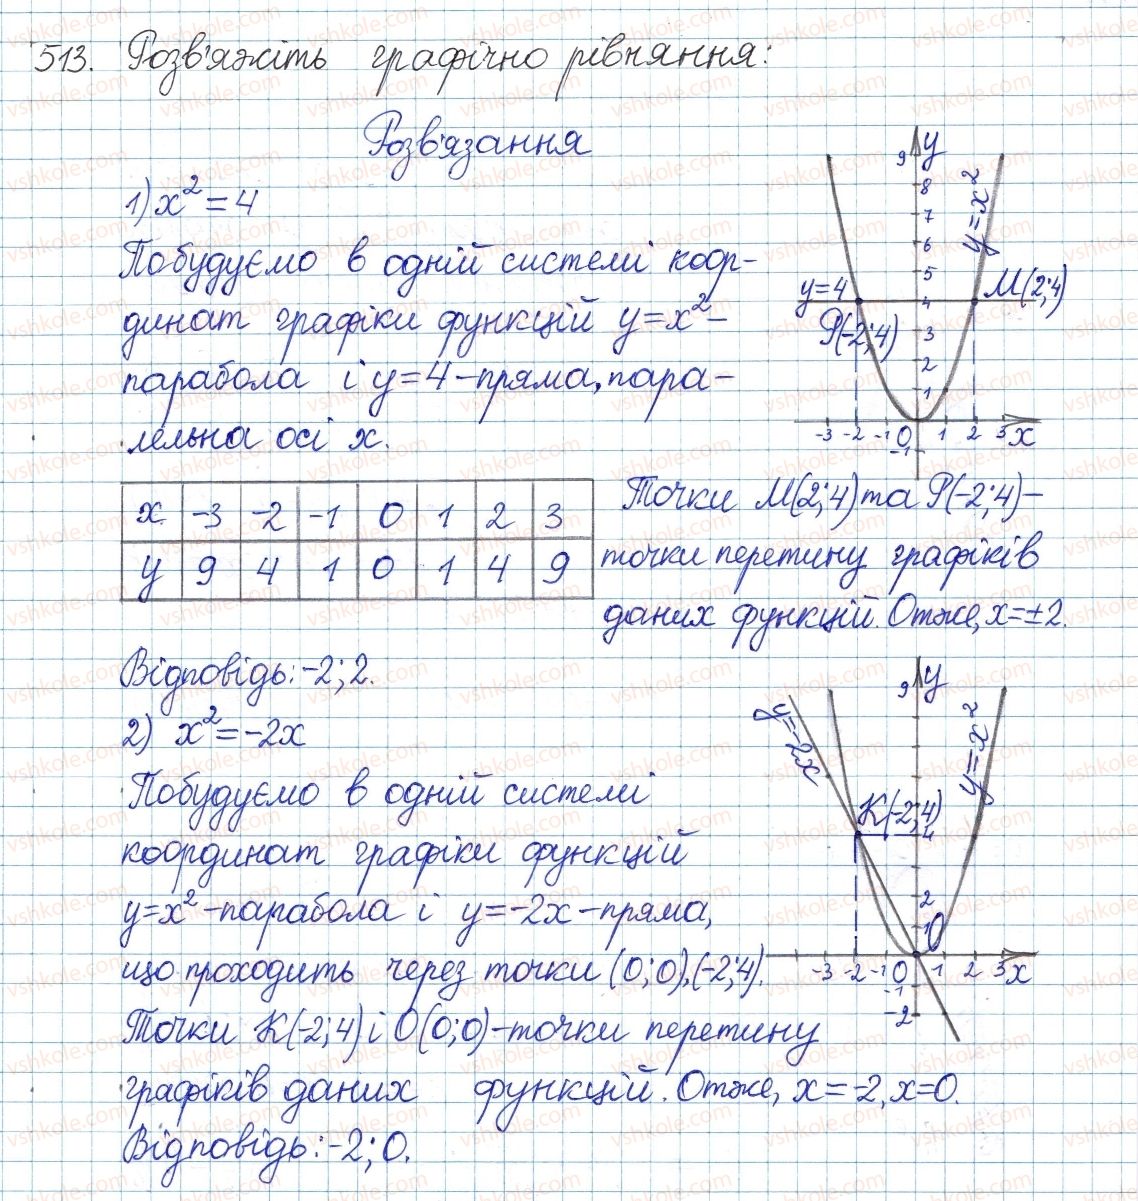 513. Розв'яжіть графічно рівняння:
Розв'язання
1) x² = 4
Побудуємо в одній системі коор-
динат графіки функцій y=x² –
парабола і y=4 – пряма, пара-
лельна осі x.
y
9
8
7
6
5
4
3
2
1
y=x²
y=4
M(2;4)
P(-2;4)
-3 -2 -1 0 1 2 3 x
-1
x -3 -2 -1 0 1 2 3
y 9 4 1 0 1 4 9
Точки M(2;4) та P(-2;4) –
точки перетину графіків
даних функцій. Отже, x=±2.
Відповідь: -2; 2.
2) x² = -2x
Побудуємо в одній системі
координат графіки функцій
y=x² – парабола і y=-2x – пряма,
що проходить через точки (0;0), (-2;4).
Точки K(-2;4) і O(0;0) – точки перетину
графіків даних функцій. Отже, x=-2, x=0.
Відповідь: -2; 0.
y
9
y=-2x
y=x²
K(-2;4)
4
2
1
O
-3 -2 -1 0 1 2 3 x
-1
-2
vshkole.com